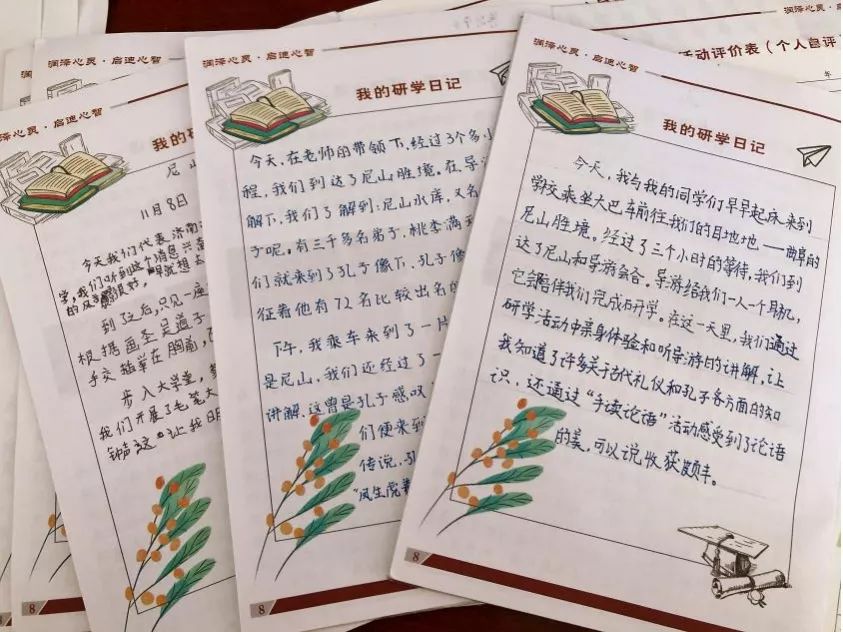 润泽心灵·启迪心智
我的研
尼山
11月8日
今天我们代表济南
学,我们听到这个消息兴
的风
到了之后,只见一座
根据画圣吴道子
手交插举在胸前,
步入大学堂,
我们开展了毛笔
8
润泽心灵·启迪心智
我的研学日记
今天,在老师的带领下,经过3个多小
程,我们到达了尼山胜境。在导
解下,我们了解到:尼山水库,又名
子呢。有三千多名弟子,桃李满
们就来到了孔子像下,孔子像
征着他有72名比较出名的
下午,我乘车来到了一片
是尼山,我们还经过了一
讲解,这曾是孔子感叹
们便来到
传说,孔
8
润泽心灵·启迪心智
我的研学日记
今天,我与我的同学们早早起床来到
学校乘坐大巴车前往我们的目地地——曲阜的
尼山胜境。经过了三个小时的等待,我们到
达了尼山和导游会合。导游给我们一人一个耳机,
它会陪伴我们完成研学。在这一天里,我们通过
研学活动中亲身体验和听导游的讲解,让
我知道了许多关于古代礼仪和孔子各方面的知
识,还通过“手读论语”活动感受到了论语
的美,可以说收获颇丰。
8
润泽心灵·启迪心智
润泽心灵·启迪心智
活动评价表(个人自评
年